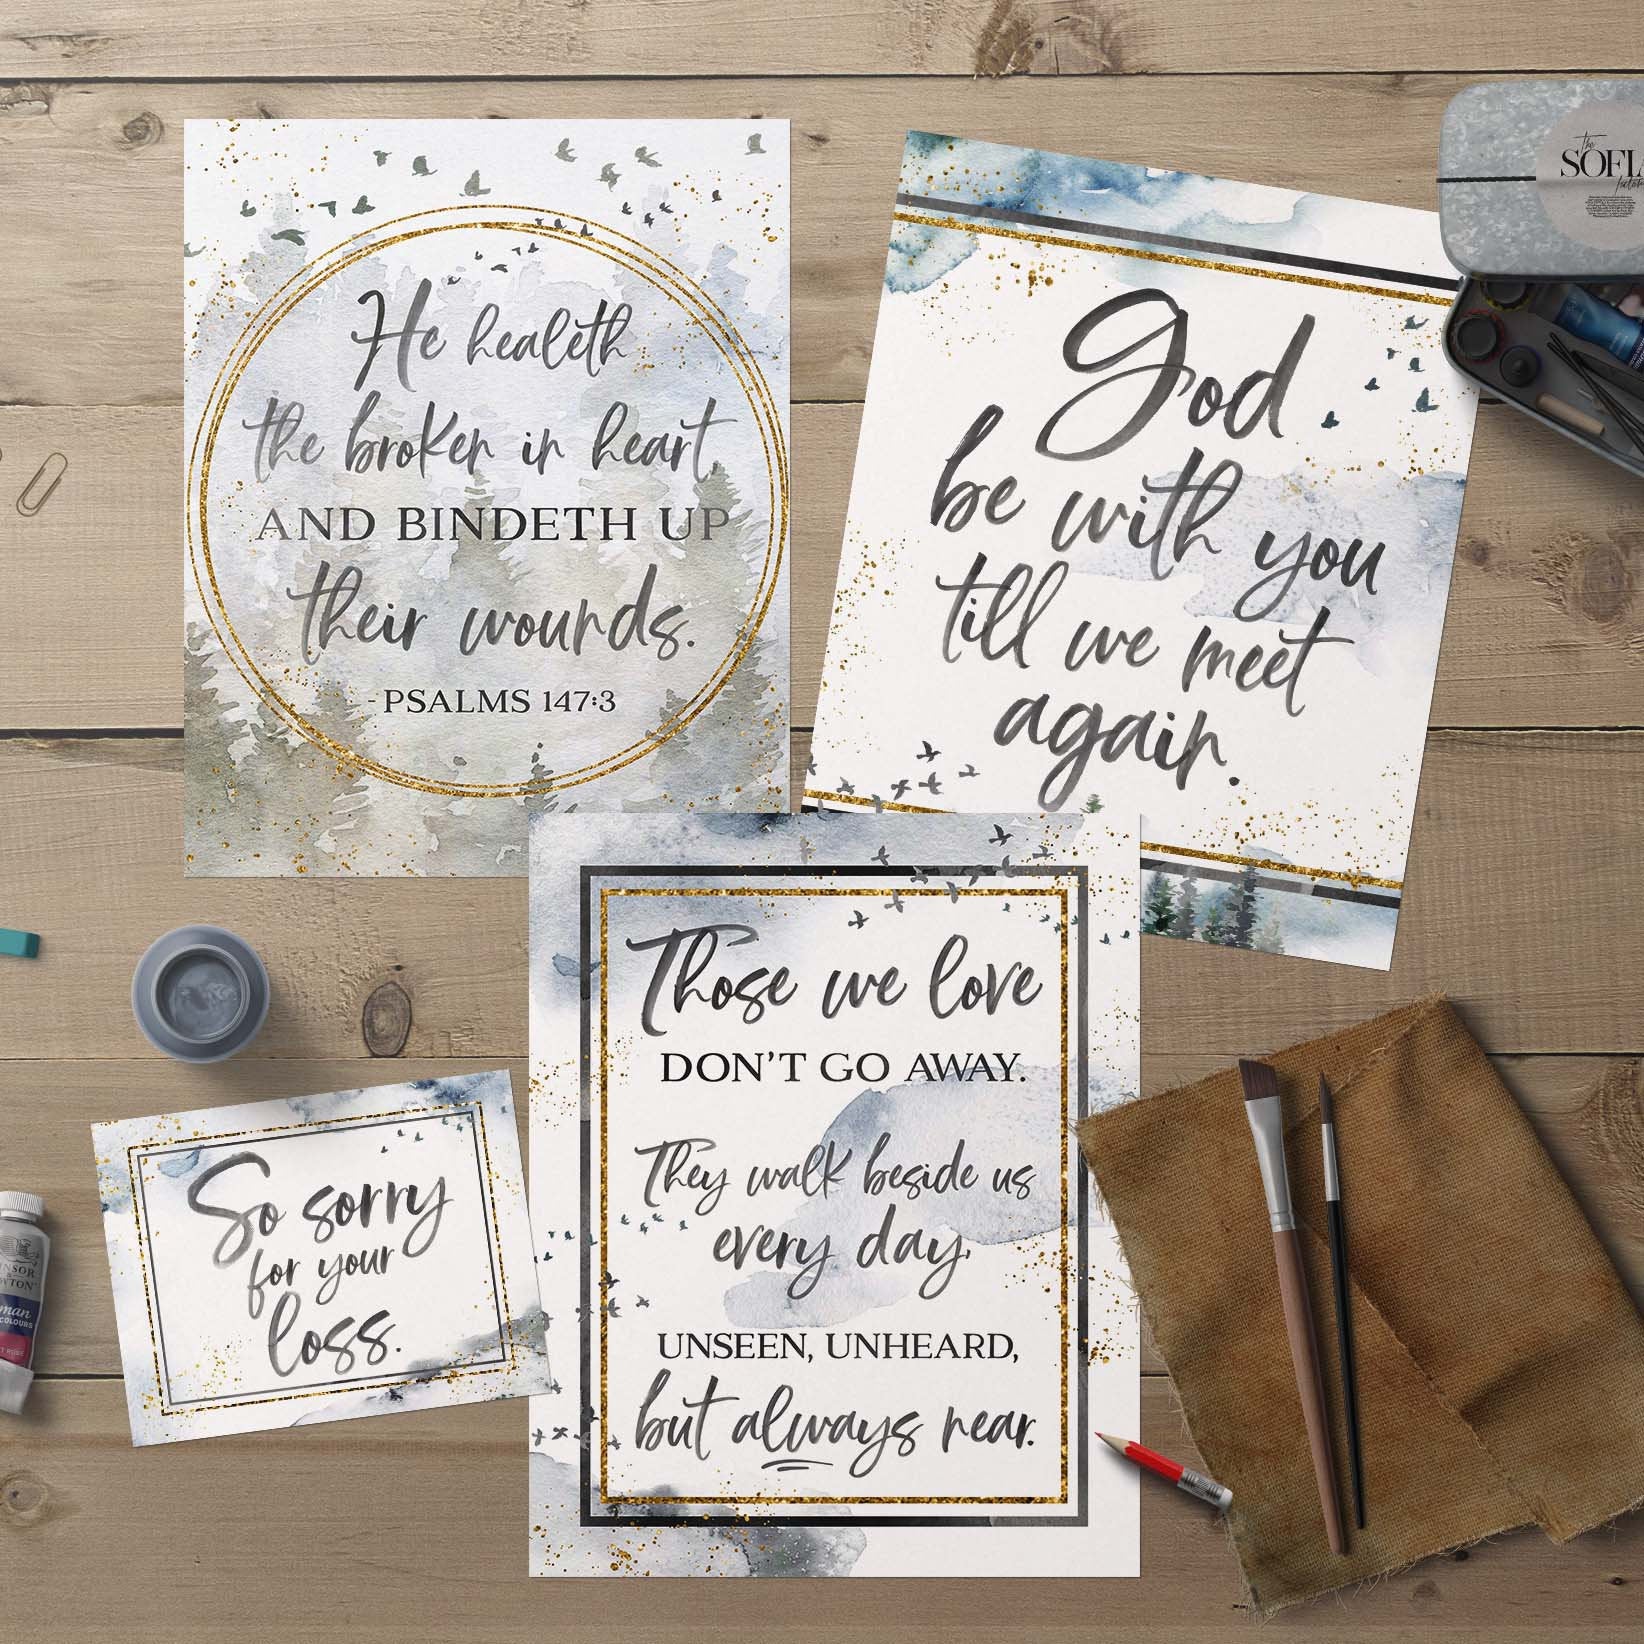 He healeth
the broken in heart,
AND BINDETH UP
their wounds.
- PSALMS 147:3
God
be with you
till we meet
again.
the
SOFIA
Those we love
DON'T GO AWAY.
They walk beside us
every day,
UNSEEN, UNHEARD,
but always near.
So sorry
for your
loss.